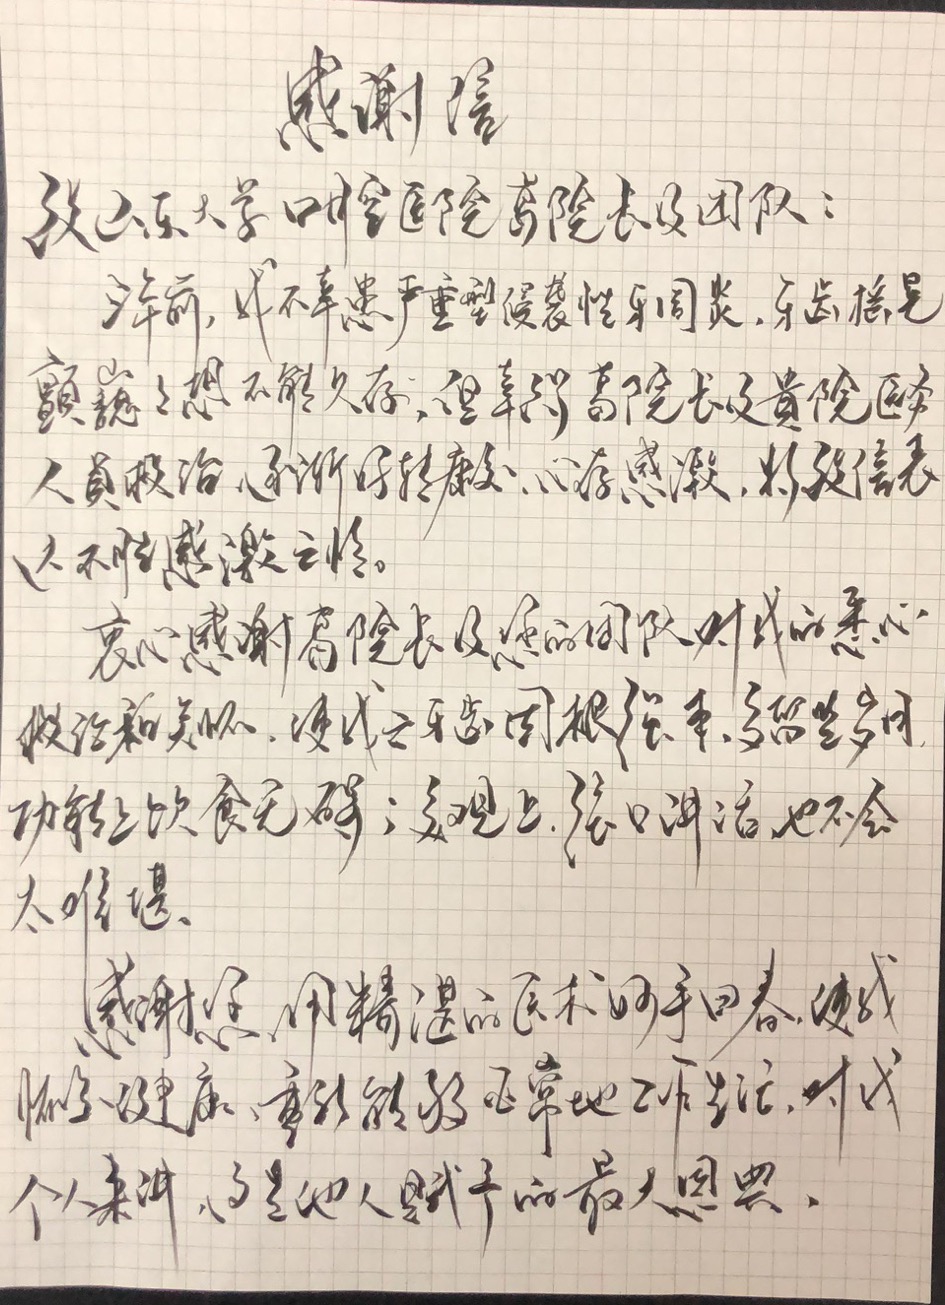 感谢信
致山东大学口腔医院葛院长及团队：
年前，我不幸患严重型侵袭性牙周炎，牙齿摇晃
颤巍巍想不能久存，但幸得葛院长及貴院医务
人員救治，逐渐好转康复，心存感激，特致信表
达不胜感激之情。
衷心感谢葛院长及您的团队对我的悉心
救治和关怀，使我之牙齿固根强本，多留些岁月，
功能上饮食无碍；美观上，张口讲话，也不会
太难堪。
感谢您，用精湛的医术妙手回春，使我
恢复健康，重新能够正常地工作生活，对我
个人来讲，这是他人赋予的最大恩典。